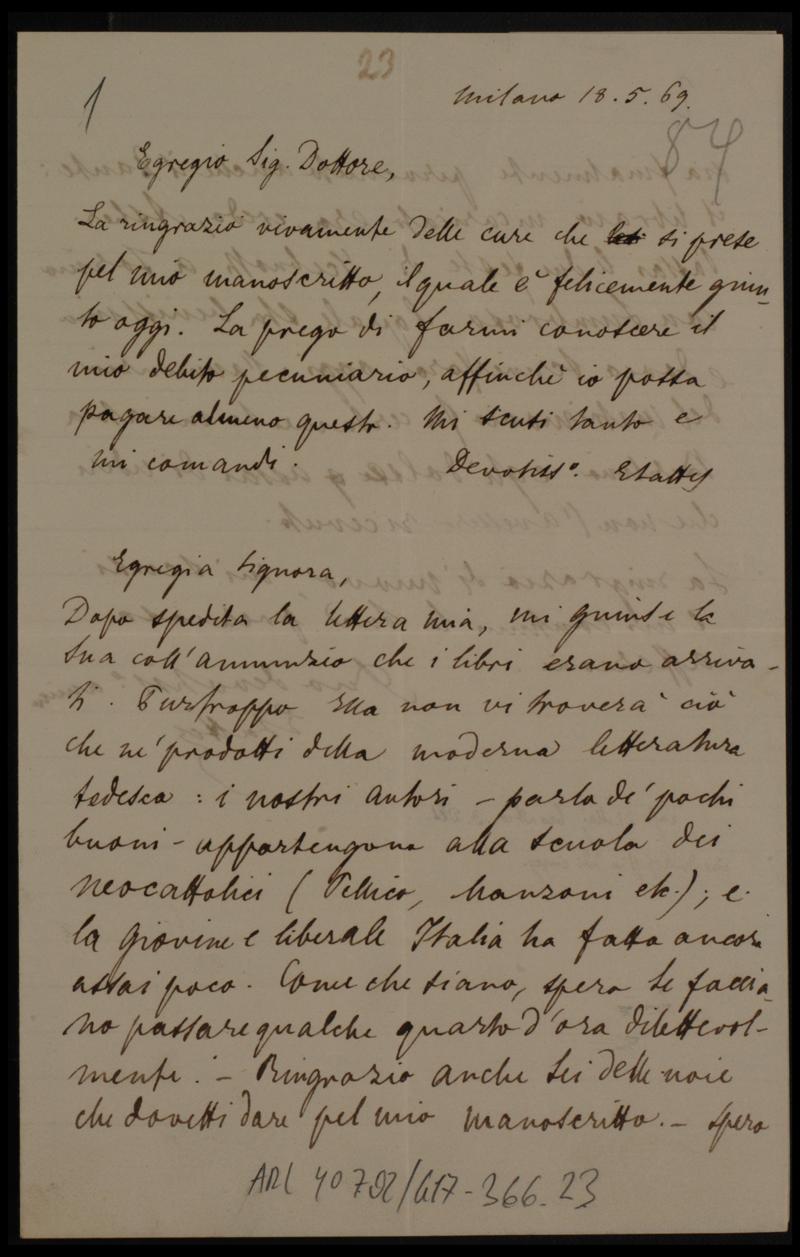 23
1
Milano 18.5.69.
84
Egregio Sig. Dottore,
La ringrazio vivamente delle cure che si prese
pel mio manoscritto, il quale è felicemente giun-
to oggi. La prego di farmi conoscere il
mio debito pecuniario, affinchè io possa
pagare almeno questo. Mi scusi tanto e
mi comandi. Devotiss°.
Egregia Signora,
Dopo spedita la lettera mia, mi giunse la
Sua coll'annunzio che i libri erano arriva-
ti. Purtroppo Ella non vi troverà ciò
che ne' prodotti della moderna letteratura
tedesca: i nostri autori - parlo de' pochi
buoni - appartengono alla scuola dei
neocattolici (Pellico, Manzoni etc.); e
la giovine e liberale Italia ha fatto ancora
assai poco. Come che siano, spero Le faccia-
no passare qualche quarto d'ora dilettevol-
mente. - Ringrazio anche Lei delle noie
che dovetti dare pel mio manoscritto. - Spero
ARL 40782/617-366.23